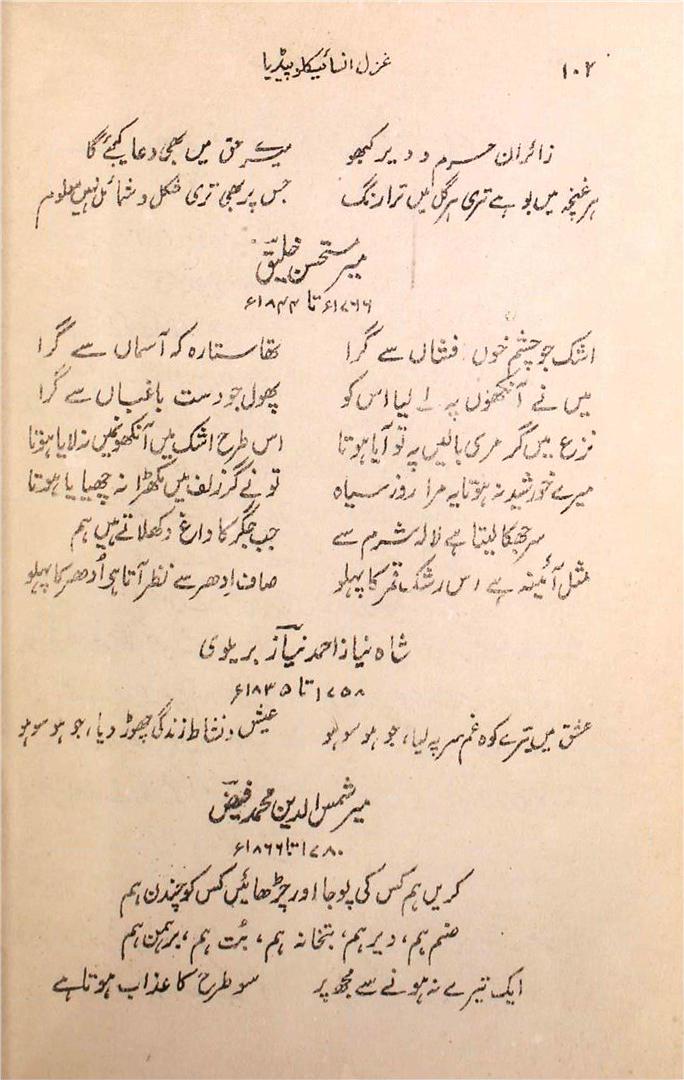 ۱۰۲ غزل انسائیکلوپیڈیا
زائران حرم و دیر کبھو میرے حق میں بھی دعا کیجئے گا
ہر غنچہ میں بو ہے تری ہر گل میں ترا رنگ جس پر بھی تری شکل و شمائل نہیں معلوم
میر مستحسن خلیق
۱۷۶۶ء تا ۱۸۴۴ء
اشک جو چشم خوں فشاں سے گرا تھا ستارہ کہ آسماں سے گرا
میں نے آنکھوں پہ لے لیا اس کو پھول جو دست باغباں سے گرا
نزع میں گر مری بالیں پہ تو آیا ہوتا اس طرح اشک میں آنکھوں میں نہ لایا ہوتا
میرے خورشید نہ ہوتا یہ مرا روز سیاہ تو نے گر زلف میں مکھڑا نہ چھپایا ہوتا
سر جھکا لیتا ہے لالہ شرم سے جب جگر کا داغ دکھلاتے ہیں ہم
مثل آئینہ ہے اس رشک قمر کا پہلو صاف اِدھر سے نظر آتا ہی اُدھر کا پہلو
شاہ نیاز احمد نیاز بریلوی
۱۷۵۸ تا ۱۸۳۵ء
عشق میں ترے کوہ غم سر پہ لیا، جو ہو سو ہو عیش و نشاط زندگی چھوڑ دیا، جو ہو سو ہو
میر شمس الدین محمد فیض
۱۷۸۰ تا ۱۸۶۶ء
کریں ہم کس کی پوجا اور چڑھائیں کس کو چندن ہم
صنم ہم، دیر ہم، بتخانہ ہم، بُت ہم، برہمن ہم
ایک تیرے نہ ہونے سے مجھ پر سو طرح کا عذاب ہوتا ہے